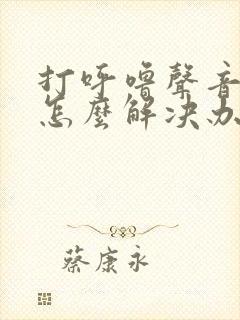 打呼嚕聲音
怎麼解决办
蔡康永